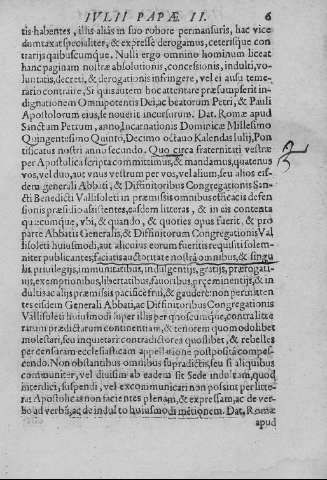 IVLII PAPÆ II. 6
tis habentes, illis aliàs in suo robore permansuris, hac vice
dumtaxat specialiter, & expresse derogamus, ceterisque con
trarijs quibuscumque. Nulli ergo omnino hominum liceat
hanc paginam nostræ absolutionis, concessionis, indulti, vo
luntatis, decreti, & derogationis infringere, vel ei ausu teme-
rario contraire, Si quis autem hoc attentare præsumpserit in-
dignationem Omnipotentis Dei, ac beatorum Petri, & Pauli
Apostolorum eius, se nouerit incursurum. Dat. Romæ apud
Sanctum Petrum, anno Incarnationis Dominicæ Millesimo
Quingentesimo Quinto, Decimo octauo Kalendas Iulij, Pon
tificatus nostri anno secundo. Quo circa fraternitati vestræ
per Apostolica scripta committimus, & mandamus, quatenus
vos, vel duo, aut vnus vestrum per vos, vel alium, seu alios eis-
dem generali Abbati, & Diffinitoribus Congregationis San-
cti Benedicti Vallisoleti in præmissis omnibus efficacis defen
sionis præsidio assistentes, easdem litteras, & in eis contenta
quæcumque, vbi, & quando, & quoties opus fuerit, & pro
parte Abbatis Generalis, & Diffinitorum Congregationis Val
lisoleti huiusmodi, aut alicuius eorum fueritis requisiti solem-
niter publicantes, faciatis auctoritate nostra omnibus, & singu
lis priuilegijs, immunitatibus, indulgentijs, gratijs, prærogati-
uis, exemptionibus, libertatibus, fauoribus, præeminentijs, & in
dultis ac alijs præmissis pacifice frui, & gaudere: non permitten
tes eisdem Generali Abbati, ac Diffinitoribus Congregationis
Vallisoleti huiusmodi super illis per quoscumque, contra litte
rarum prædictarum continentiam, & tenorem quomodolibet
molestari, seu inquietari contradictores quoslibet, & rebelles
per censuram ecclesiasticam appellatione postposita compes-
cendo. Non obstantibus omnibus supradictis, seu si aliquibus
communiter, vel diuisim ab eadem sit Sede indultum, quod
interdici, suspendi, vel excommunicari non possint per litte-
ras Apostolicas non facientes plenam, & expressam, ac de ver-
bo ad verbum, ac de indulto huiusmodi mentionem. Dat. Romæ
apud